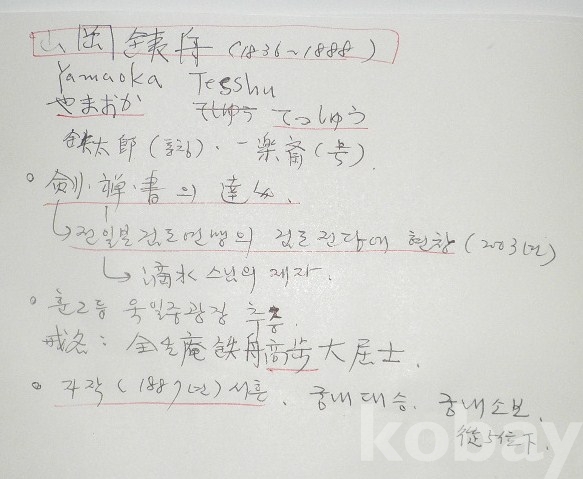 山岡鉄舟 (1836~1888)
Yamaoka Tesshu
やまおか てしゅう てっしゅう
鉄太郎(통칭)·一楽斎(号)
剣·禅·書의 達人.
전일본검도연맹의 검도전당에 현창(2003년)
滴水스님의 제자.
훈2등 욱일중광장 추증.
戒名: 全生庵鉄舟高歩大居士.
자작(1887년)서훈. 궁내대승. 궁내소보.
從5位下.
kobay